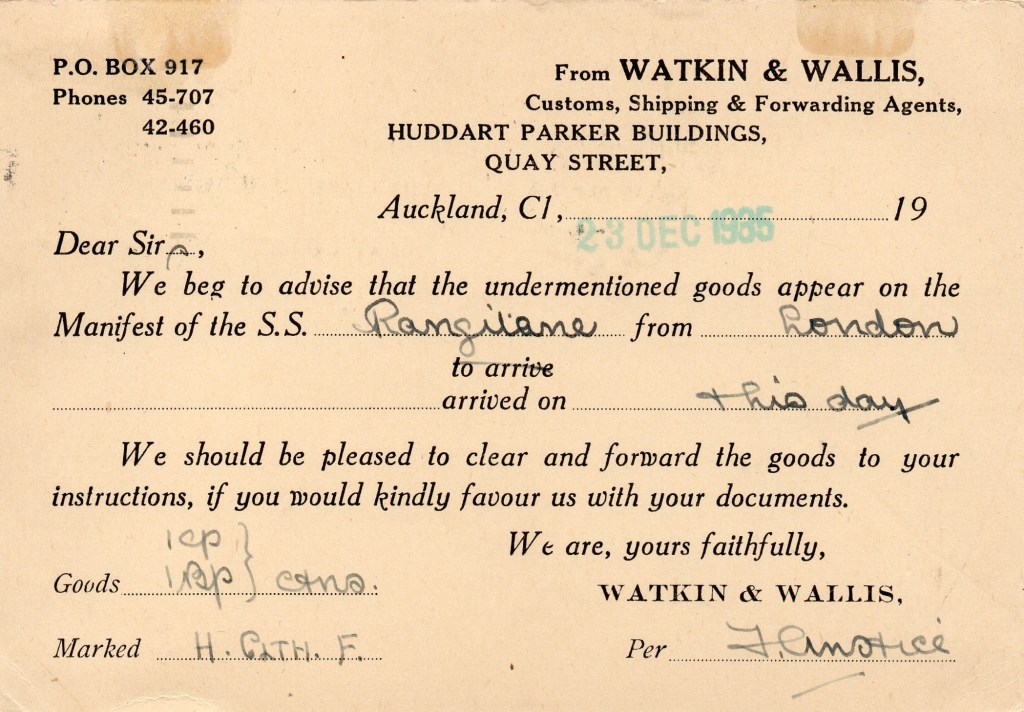 P.O. BOX 917
Phones 45-707
42-460
From WATKIN & WALLIS,
Customs, Shipping & Forwarding Agents,
HUDDART PARKER BUILDINGS,
QUAY STREET,
Auckland, C1, 23 DEC 1935 19
Dear Sir ,
We beg to advise that the undermentioned goods appear on the
Manifest of the S.S. Rangitane from London
to arrive
arrived on this day
We should be pleased to clear and forward the goods to your
instructions, if you would kindly favour us with your documents.
We are, yours faithfully,
1 cp
Goods 1 Bp } ctns.
WATKIN & WALLIS,
Marked H. F.
Per